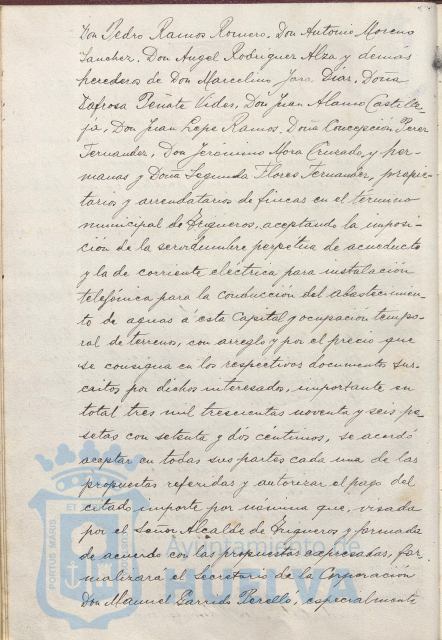 Don Pedro Ramos Romero, Don Antonio Moreno
Sanchez, Don Angel Rodriguez Alza y demás
herederos de Don Marcelino Jara Diaz, Doña
Zafrosa Peñate Vides, Don Juan Alamo Castella-
jo, Don Juan Lepe Ramos, Doña Concepción Perez
Fernandez, Don Jerónimo Mora Cruzado y her-
manas y Doña Segunda Flores Fernandez, propie-
tario y arrendatarios de fincas en el término
municipal de Trigueros, aceptando la imposi-
cion de la servidumbre perpetua de acueducto
y la de corriente eléctrica para instalación
telefónica para la conducción del abastecimien-
to de aguas á esta Capital y ocupación tempo-
ral de terreno, con arreglo y por el precio que
se consigna en los respectivos documentos sus-
critos por dichos interesados, importante en
total tres mil trescientas noventa y seis pe-
setas con setenta y dos céntimos, se acordó
aceptar en todas sus partes cada una de las
propuestas referidas y autorizar el pago del
citado importe por nomina que, visada
por el Señor Alcalde de Trigueros y formada
de acuerdo con las propuestas expresadas, for-
malizará el Secretario de la Corporación
Don Manuel Garrido Perello, especialmente
PORTUS MARIS
ET
Ayuntamiento de
HUELVA